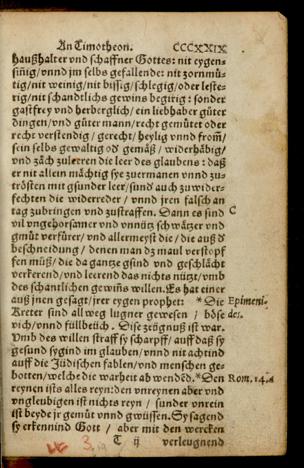 An Timotheon. CCCXXIX
haußhalter vnd schaffner Gottes: nit eygen-
siñig/vnnd jm selbs gefallende: nit zornmü-
tig/nit weinig/nit bissig/schlegig/oder leste-
rig/nit schandtlichs gewins begirig: sonder
gastfrey vnd herberglich/ein liebhaber güter
dingen/vnd güter mann/recht gemütet oder
recht verstendig/gerecht/heylig vnnd from̃/
sein selbs gewaltig od gemäß/widerhäbig/
vnd zäch zuleeren die leer des glaubens: daß
er nit allein mächtig sye zuermanen vnnd zu-
trösten mit gsunder leer/sund auch zuwider-
fechten die widerreder/vnnd jren falsch an
tag zubringen vnd zustraffen. Dann es sind C
vil vngehorsamer vnd vnnütz schwätzer vnd
gmüt verfürer/vnd allermeyst die/die auß d
beschneidung/denen man dz maul verstopf
fen müß/die da gantze gsind vnd geschlächt
verkerend/vnd leerend das nichts nützt/vmb
des schantlichen gewiñs willen. Es hat einer
auß jnen gesagt/jrer eygen prophet: *Die Epimeni-
Kreter sind all weg lugner gewesen/böse des.
vich/vnnd füllbeüch. Dise zeügnuß ist war.
Vmb des willen straff sy scharpff/auff daß sy
gesund sygind im glauben/vnnd nit achtind
auff die Jüdischen fablen/vnd menschen ge-
botten/welche die warheit abwendẽd. *Den Rom. 14.a
reynen ists alles reyn: den vnreynen aber vnd
vngleubigen ist nichts reyn/sunder vnrein
ist beyde jr gemüt vnnd gwüssen. Sy sagend
sy erkennind Gott/aber mit den wercken
T ij verleugnend